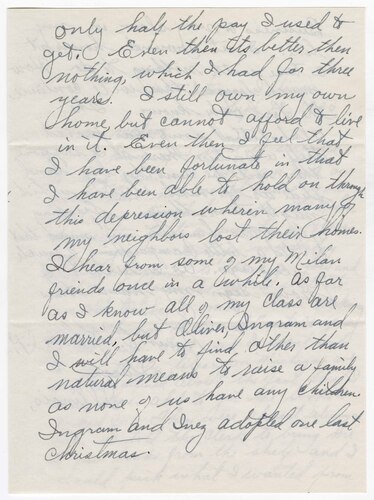 only half the pay I used to
get. Even then its better then
nothing, which I had for three
years. I still own my own
home, but cannot afford to live
in it. Even then I feel that
I have been fortunate in that
I have been able to hold on through
this depression wherein many of
my neighbors lost their homes.
I hear from some of my Milan
friends once in a while. As far
as I know all of my class are
married, but Oliver Ingram and
I will have to find, other than
natural means to raise a family
as none of us have any children
Ingram and Inez adopted one last
Christmas.